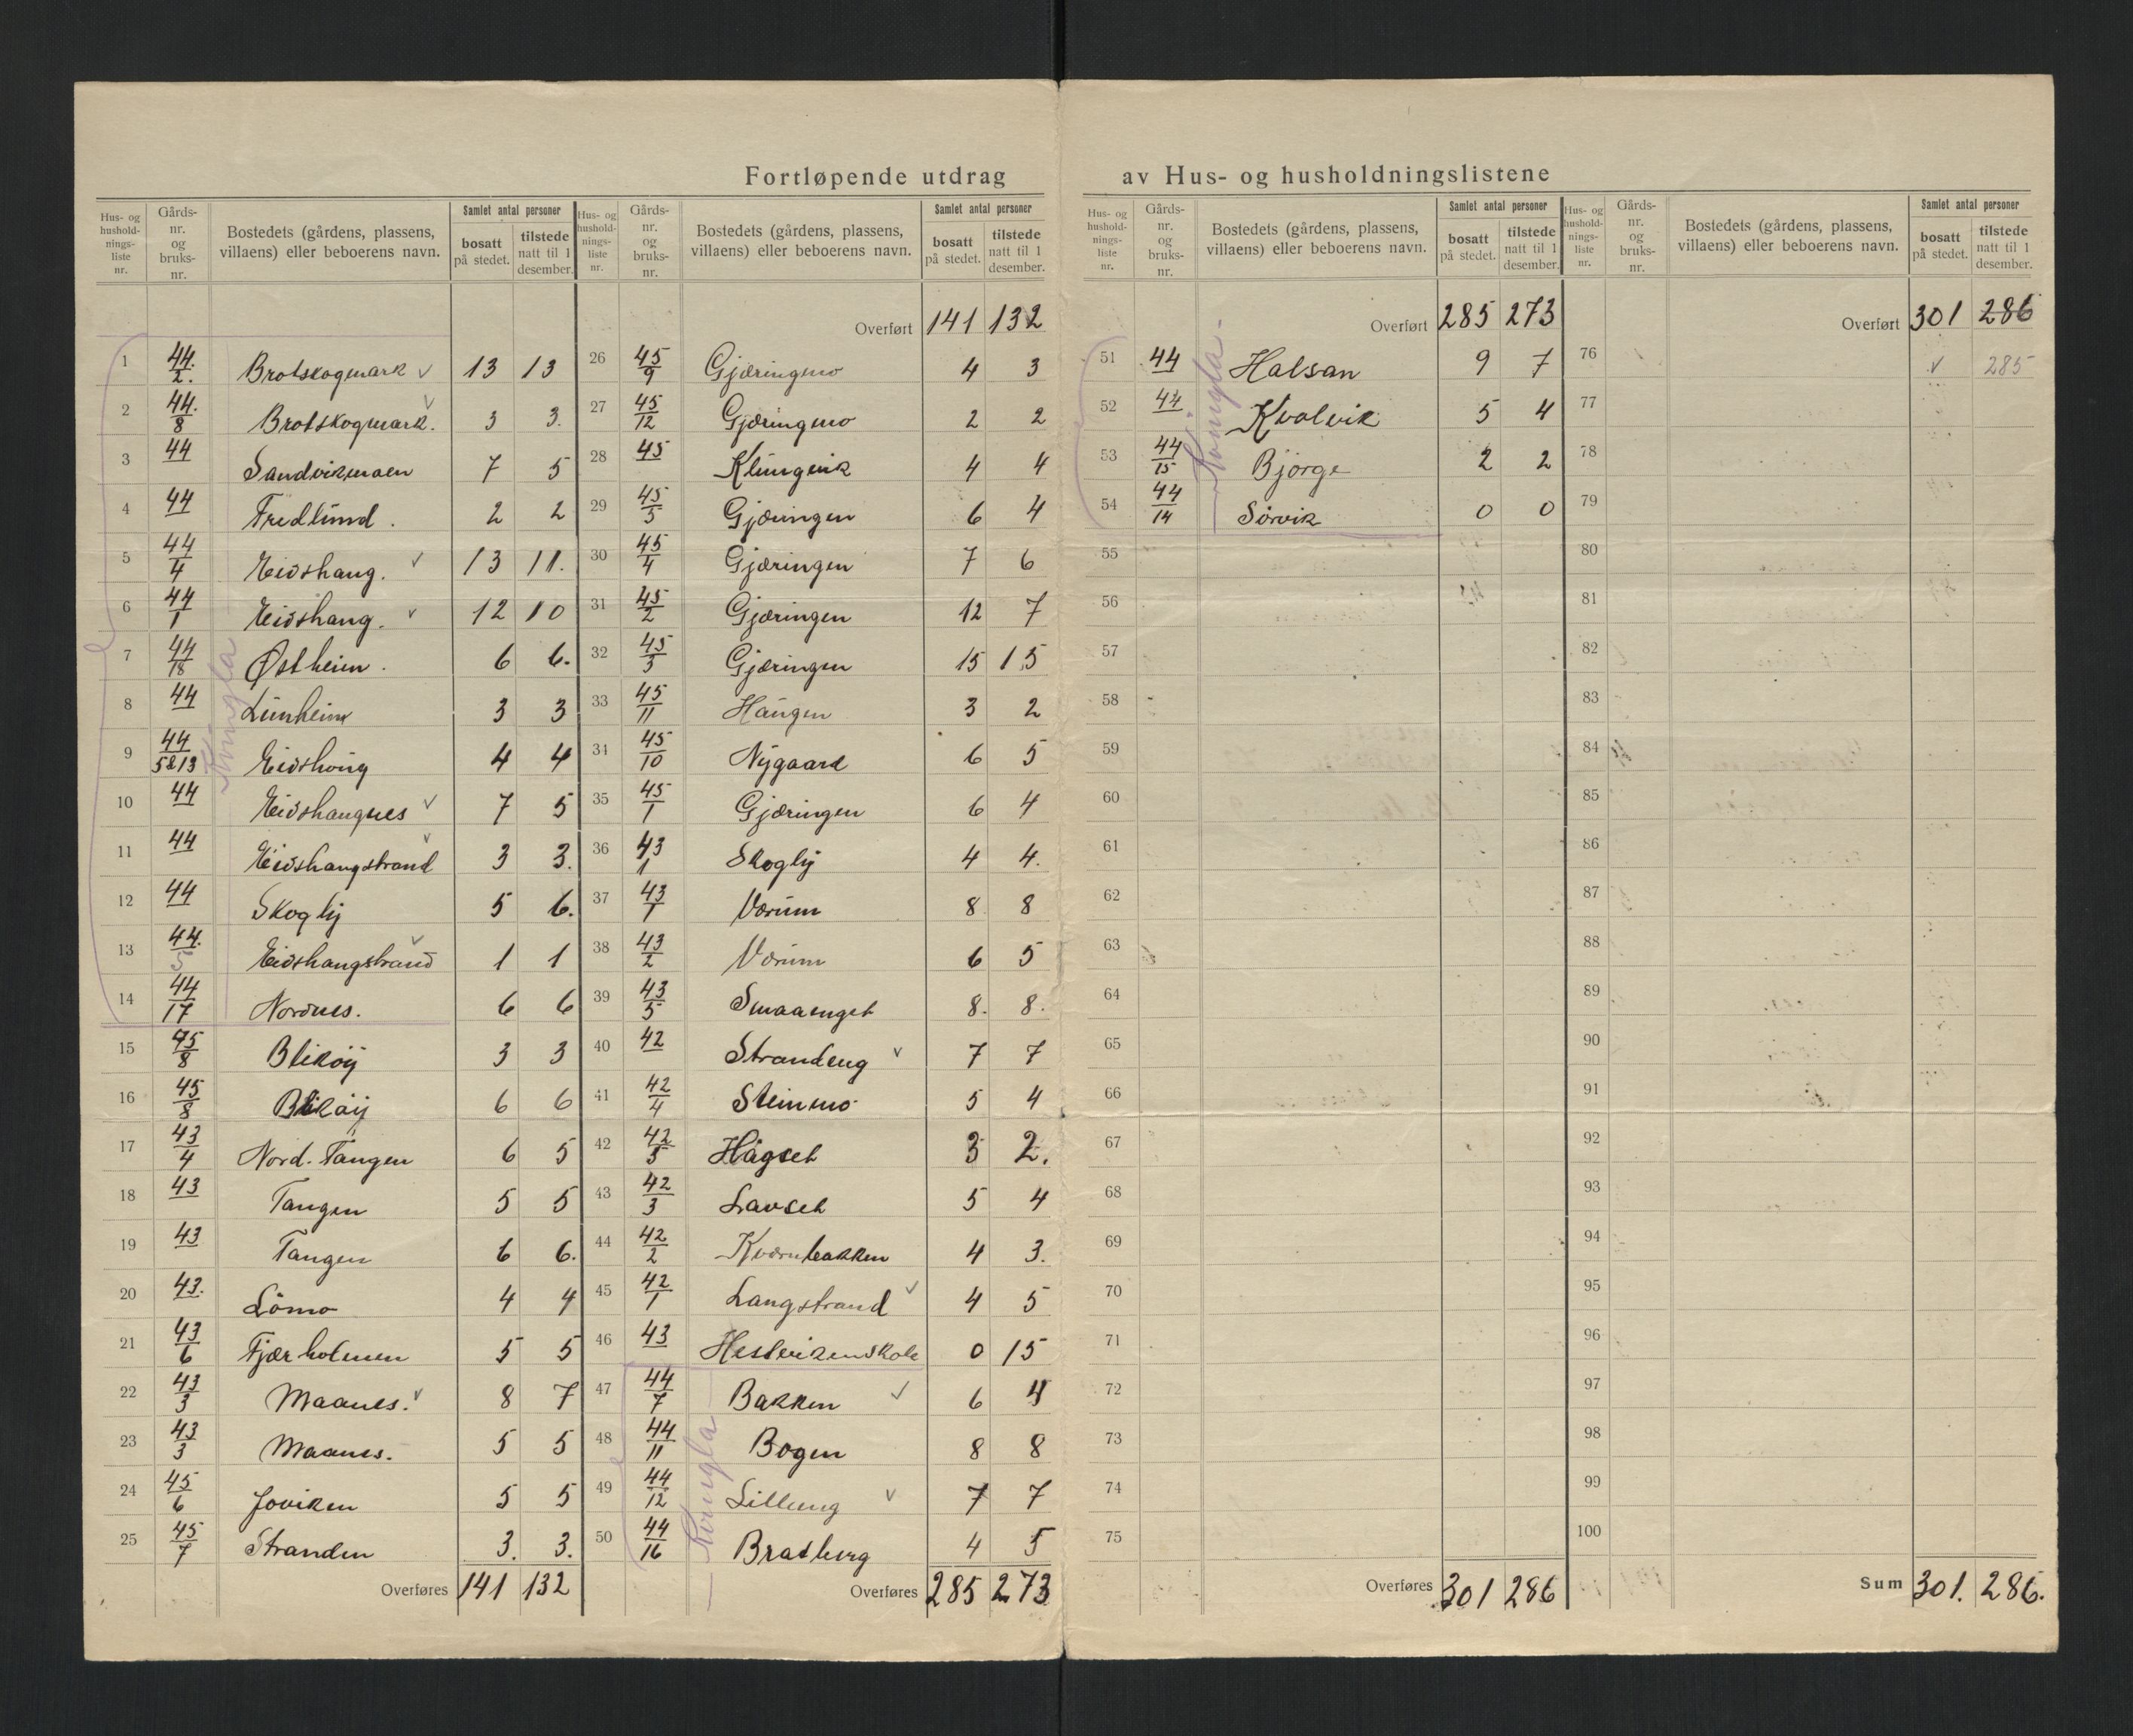 Fortløpende utdrag av Hus- og husholdningslistene
Hus- og hushold- nings- liste nr. | Gårds- nr. og bruks- nr. | Bostedets (gårdens, plassens, villaens) eller beboerens navn. | Samlet antal personer | bosatt på stedet. | tilstede natt til 1 desember.
1 44./2. Brotskogmark ✓ 13 13
2 44./8 Brotskogmark. ✓ 3 3.
3 44 Sandvikmoen 7 5
4 44 Fredlund. 2 2
5 44/4 Eidshaug. ✓ 13 11.
6 44/1 Eidshaug. ✓ 12 10
7 44/18 Østheim. 6 6.
8 44 Lunheim 3 3
9 44/5&13 Eidshaug 4 4
10 44 Eidshaugnes ✓ 7 5
11 44 Eidshaugstrand ✓ 3 3.
12 44 Skogly 5 6.
13 44./5 Eidshaugstrand ✓ 1 1
14 44/17 Nordnes. 6 6
Kvingla
15 45/8 Blikøy 3 3
16 45/8 Blikøy 6 6
17 43/4 Nord. Tangen 6 5
18 43 Tangen 5 5
19 43 Tangen 6 6.
20 43. Lömo 4 4
21 43/6 Fjærholmen 5 5
22 43/3 Maanes. ✓ 8 7
23 43/3 Maanes. 5 5
24 45/6 Joviken 5 5
25 45/7 Stranden 3. 3.
Overføres 141 132
Hus- og hushold- nings- liste nr. | Gårds- nr. og bruks- nr. | Bostedets (gårdens, plassens, villaens) eller beboerens navn. | Samlet antal personer | bosatt på stedet. | tilstede natt til 1 desember.
Overført 141 132
26 45/9 Gjæringmo 4 3
27 45/12 Gjæringmo 2 2
28 45 Klungvik 4 4
29 45/5 Gjæringen 6 4
30 45/4 Gjæringen 7 6
31 45/2 Gjæringen 12 7
32 45/3 Gjæringen 15 15
33 45/11 Haugen 3 2
34 45/10 Nygaard 6 5
35 45/1 Gjæringen 6 4
36 43/1 Skogly 4 4.
37 43/1 Værum 8 8
38 43/2 Værum 6 5
39 43/5 Smaaenget 8. 8.
40 42 Strandeng ✓ 7 7
41 42/4 Steinmo 5 4
42 42/5 Hågset 3 2.
43 42/3 Lavset 5 4
44 42/2 Kvernbakken 4 3.
45 42/1 Langstrand ✓ 4 5
46 43 Hestvikenskole 0 15
47 44/7 Bakken ✓ 6 4
48 44/11 Bogen 8 8
49 44/12 Lilleng ✓ 7 7
50 44/16 Bratberg 4 5
Kvingla
Overføres 285 273
Hus- og hushold- nings- liste nr. | Gårds- nr. og bruks- nr. | Bostedets (gårdens, plassens, villaens) eller beboerens navn. | Samlet antal personer | bosatt på stedet. | tilstede natt til 1 desember.
Overført 285 273
51 44 Halsan 9 7
52 44 Kvalvik 5 4
53 44/15 Bjørge 2 2
54 44/14 Sörvik 0 0
Kvingla
55
56
57
58
59
60
61
62
63
64
65
66
67
68
69
70
71
72
73
74
75
Overføres 301 286
Hus- og hushold- nings- liste nr. | Gårds- nr. og bruks- nr. | Bostedets (gårdens, plassens, villaens) eller beboerens navn. | Samlet antal personer | bosatt på stedet. | tilstede natt til 1 desember.
Overført 301 286
76 ✓ 285
77
78
79
80
81
82
83
84
85
86
87
88
89
90
91
92
93
94
95
96
97
98
99
100
Sum 301. 286.